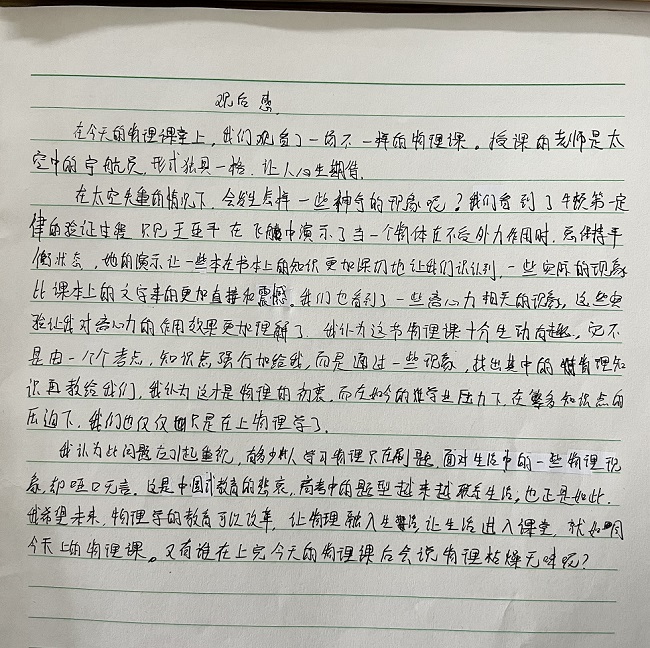 观后感.
在今天的物理课堂上,我们观赏了一场不一样的物理课。授课的老师是太
空中的宇航员,形式独具一格,让人心生期待.
在太空失重的情况下,会发生怎样一些神奇的现象呢?我们看到了牛顿第一定
律的验证过程 只见王亚平在飞船中演示了当一个物体在不受外力作用时,会保持平
衡状态,她的演示让一些本在书本上的知识更加深切地让我们认识到,一些实际的现象
比课本上的文字来的更加直接和震撼。我们也看到了一些离心力相关的现象,这些实
验让我对离心力的作用效果更加理解了 我认为这节物理课十分生动有趣,它不
是由一个个考点,知识点强行加给我,而是通过一些现象,找出其中的物理知
识再教给我们,我认为这才是物理的初衷,而在如今的学业压力下,在繁多知识点的
压迫下,我们也仅仅只是在上物理学了.
我认为此问题应引起重视,有多少人学习物理只在刷题,面对生活中的一些物理现
象,却哑口无言.这是中国式教育的悲哀,高考中的题型越来越联系生活,也正是如此.
我希望未来,物理学的教育可以改革,让物理融入生活,让生活进入课堂,就如同
今天上的物理课。又有谁在上完今天的物理课后会说物理枯燥无味呢?